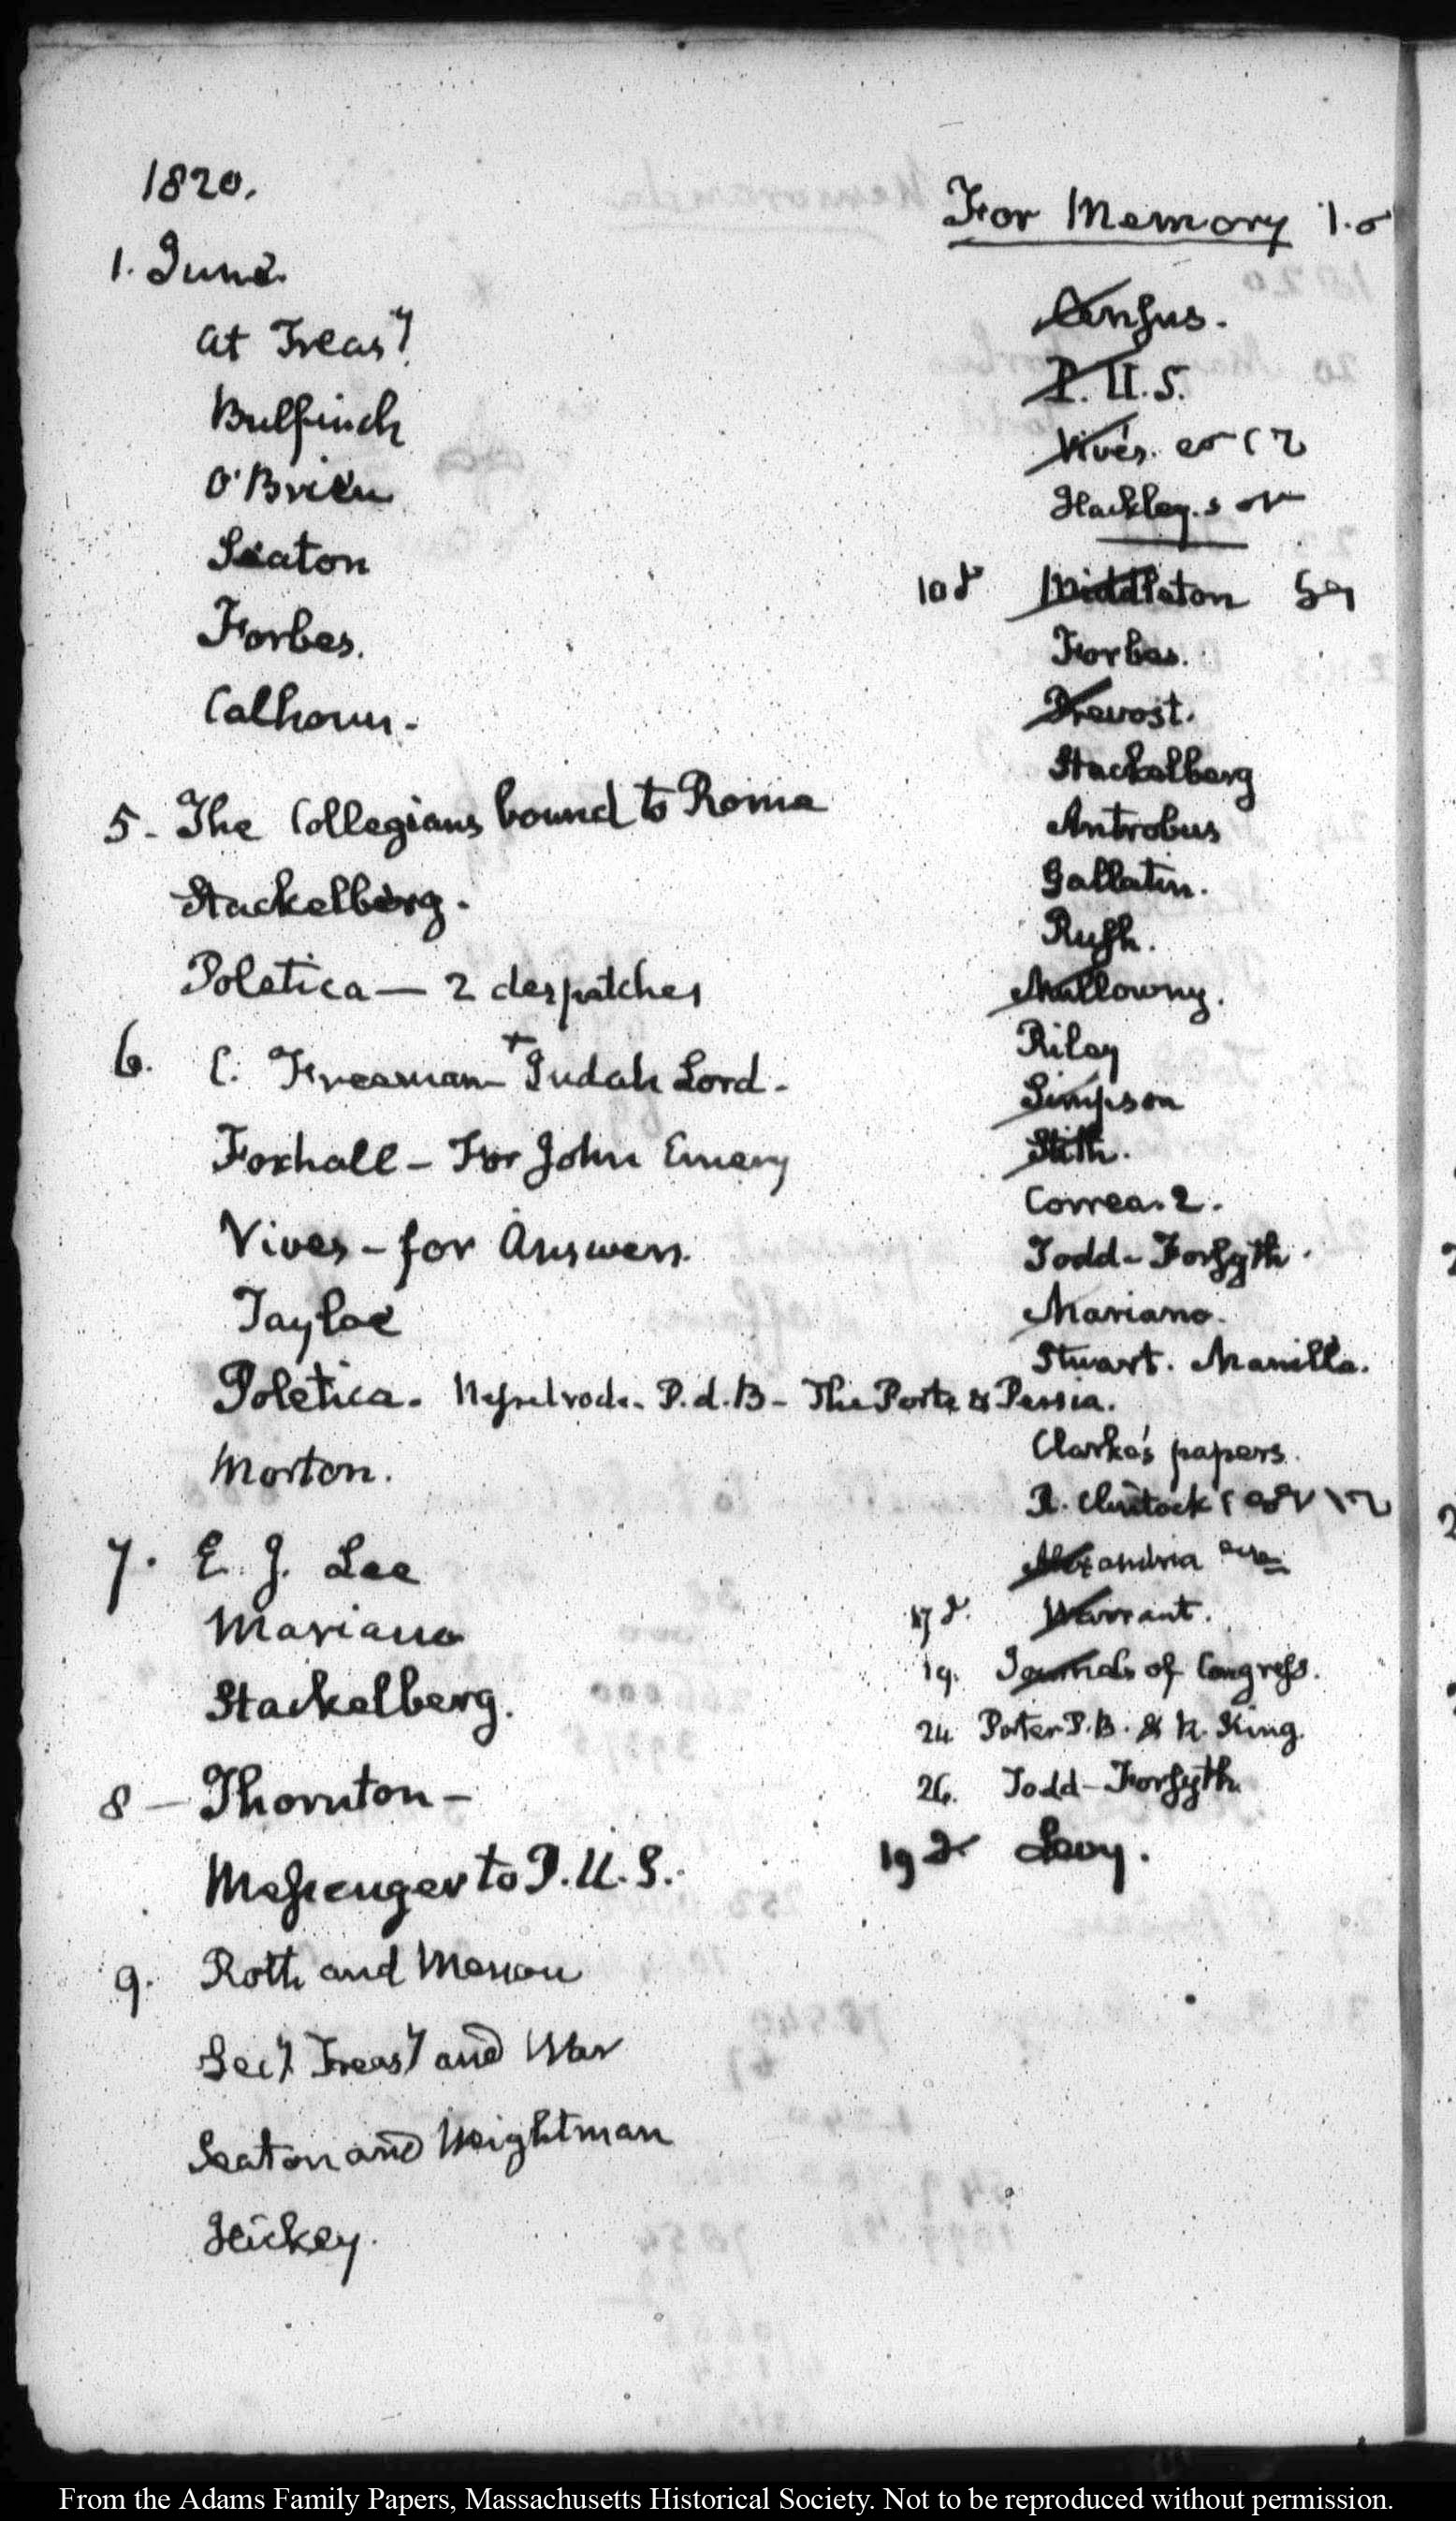 1820.
1. June.
at Treasy.
Bulfinch
O'Brien
Seaton
Forbes.
Calhoun.
5- The Collegians bound to Rome
Stackelberg.
Poletica — 2 despatches
6. C. Freeman + Judah Lord.
Foxhall - For John Emery
Vives - for Answers.
Tayloe
Poletica. Nesselrode. P.d.B - The Porte & Persia.
Morton.
7. E. J. Lee
Mariano
Stackelberg.
8 - Thornton -
Messenger to P.U.S.
9. Roth and Menou
Secy. Treasy and War
Seaton and Weightman
Hickey.
For Memory
Census.
P.U.S.
Vives.
Hackley.s
10 d Middleton
Forbes.
Prevost.
Stackelberg
Antrobus
Gallatin.
Rush.
Mullowny.
Riley
Simpson
Stith.
Correa. 2.
Todd - Forsyth.
Mariano.
Stuart. Manilla.
Clarke's papers.
R.
Alexandria
17 d. Warrant.
19. Journals of Congress.
24 Porter P.B. & R. King.
26. Todd - Forsyth.
19 d Levy.
From the Adams Family Papers, Massachusetts Historical Society. Not to be reproduced without permission.